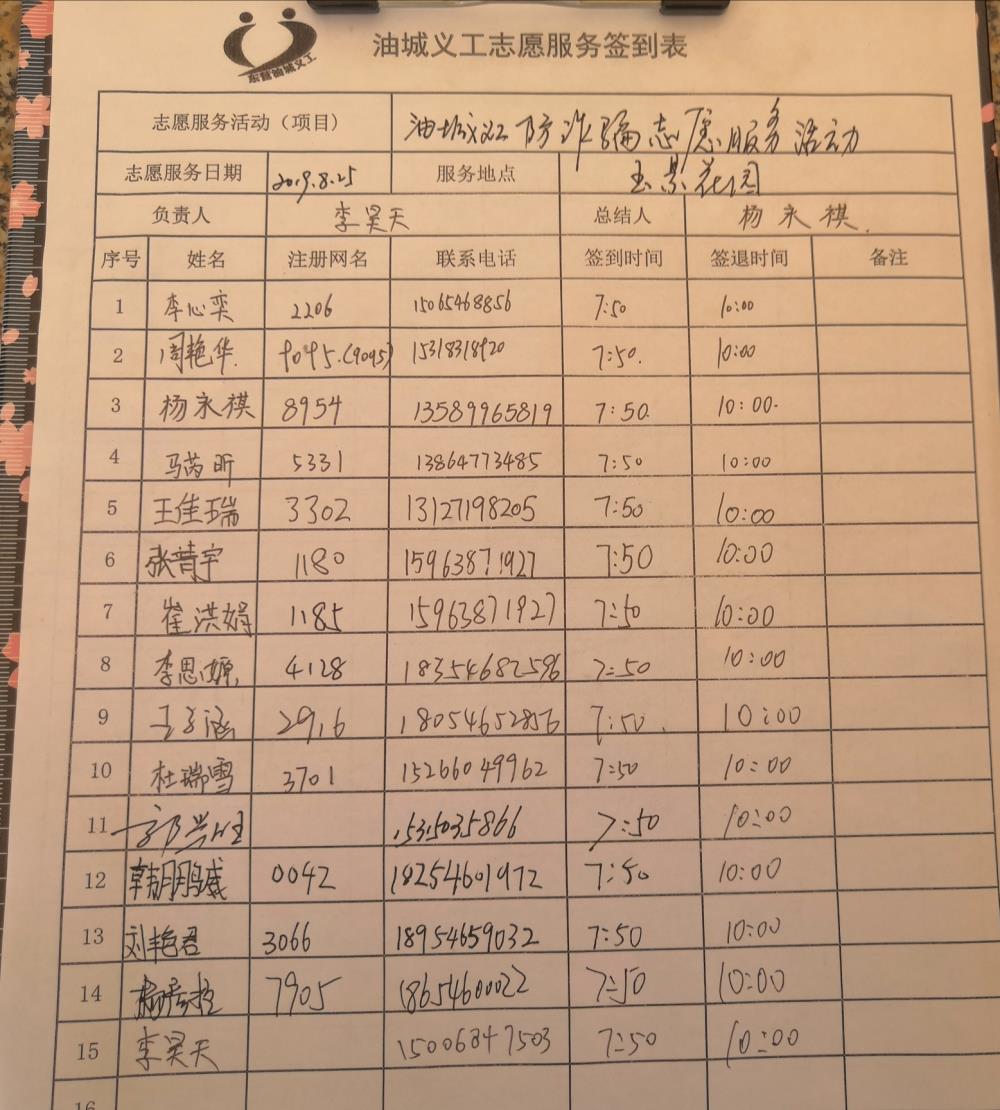 东营油城义工
油城义工志愿服务签到表
志愿服务活动（项目） 油城义工防诈骗志愿服务活动
志愿服务日期 2019.8.25 服务地点 玉景花园
负责人 李昊天 总结人 杨永祺.
序号 姓名 注册网名 联系电话 签到时间 签退时间 备注
1 李心奕 2206 15065468856 7:50 10:00
2 周艳华. 9095.(9095) 15318318920 7:50. 10:00
3 杨永祺 8954 13589965819 7:50. 10:00.
4 马芮昕 5331 13864773485 7:50 10:00
5 王佳瑞 3302 13127198205 7:50 10:00
6 张普宇 1180 15963871927 7:50 10:00
7 崔洪娟 1185 15963871927 7:50 10:00
8 李思嫄 4128 18354682596 7:50 10:00
9 王子涵 2916 18054652856 7:50. 10:00
10 杜瑞雪 3701 15266049962 7:50 10:00
11 7:50 10:00
12 韩鹏威 0042 18254601972 7:50 10:00
13 刘艳君 3066 18954659032 7:50 10:00
14 7905 18654600022 7:50 10:00
15 李昊天 15006847503 7:50 10:00
16